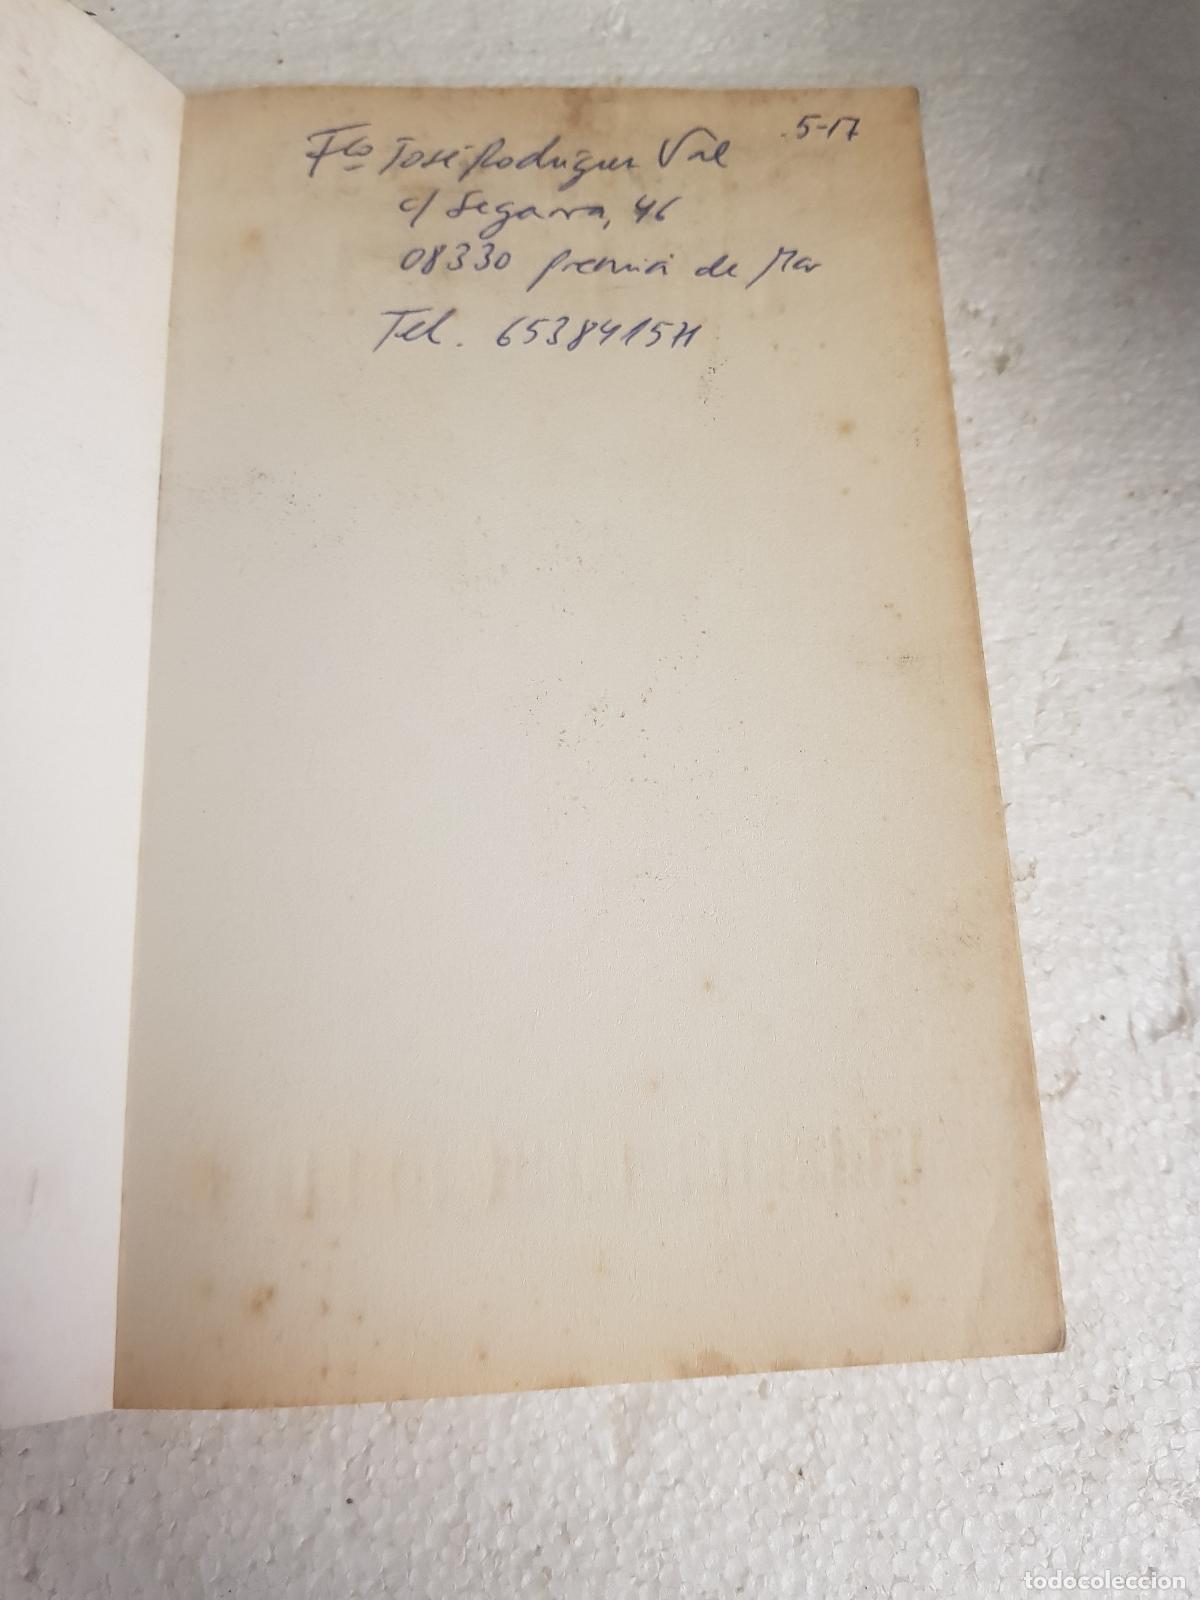 5-17
Fco José Rodríguez Val
c/ Segarra, 46
08330 Premiá de Mar
Tel. 653841571
todocoleccion